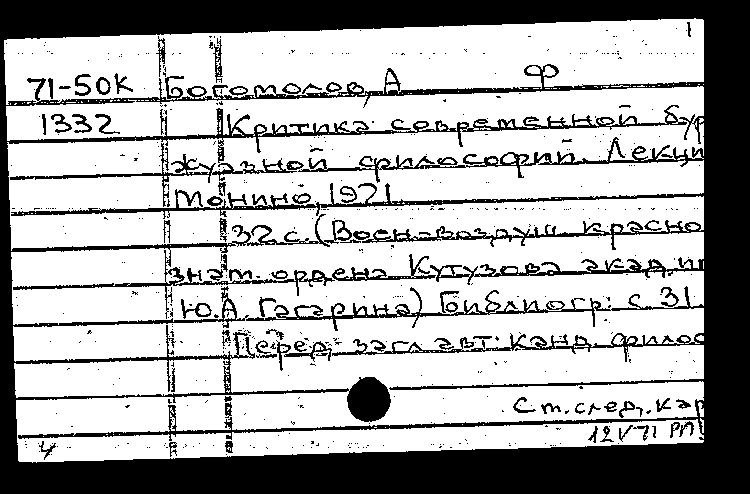 1
71-50К Богомолов, А Ф
1332 Критика современной бур
жуазной философий. Лекци
Монино, 1971.
32 с. (Воен.-воздуш. красно
знам. ордена Кутузова акад. и
Ю.А. Гагарина) Библиогр: с 31.
Перед загл авт: канд. филос
См. след. кар
12 V 71 РП
4